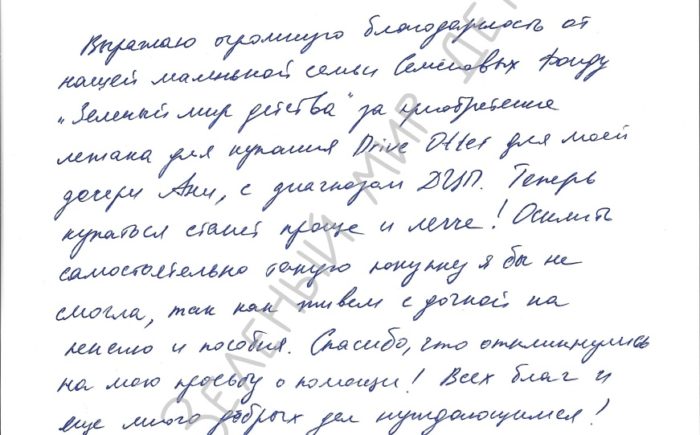 Выражаю огромную благодарность от
нашей маленькой семьи Семёновых Фонду
„Зеленый мир детства" за приобретение
лежака для купания Drive Otter для моей
дочери Ани, с диагнозом ДЦП. Теперь
купаться станет проще и легче! Осилить
самостоятельно такую покупку я бы не
смогла, так как живем с дочкой на
пенсию и пособия. Спасибо, что откликнулись
на мою просьбу о помощи! Всех благ и
еще много добрых дел нуждающимся!
ЗЕЛЕНЫЙ МИР ДЕТ